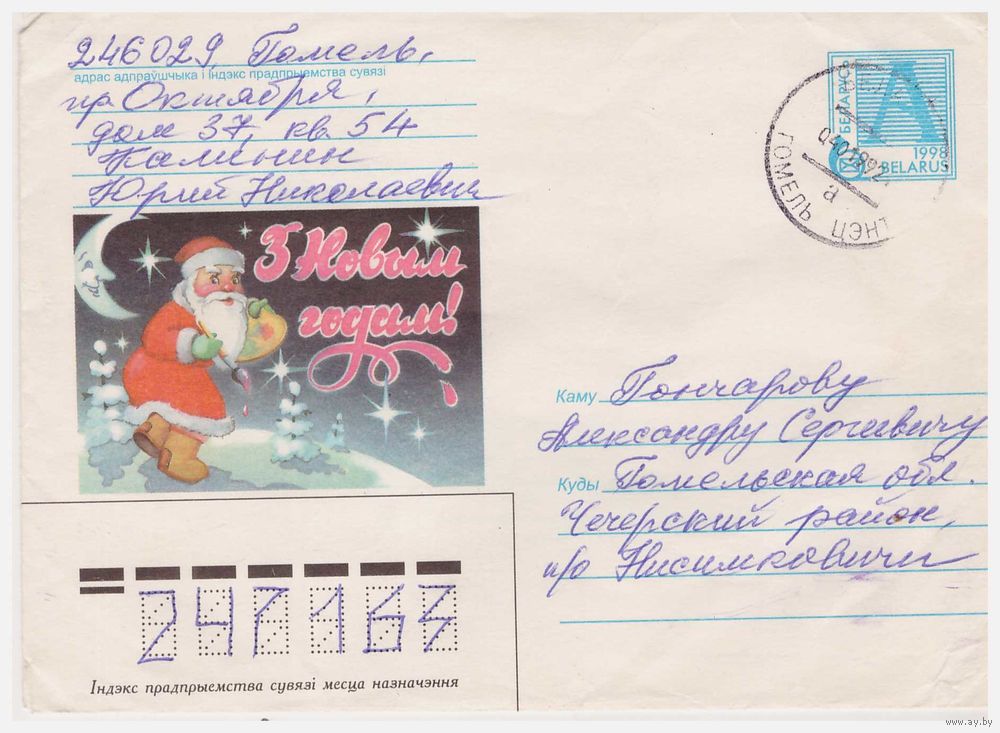 246029, Гомель,
адрас адпраўшчыка і індэкс прадпрыемства сувязі
пр. Октября,
дом 37, кв. 54
Калинин
Юрий Николаевич
З Новым
годам!
BELARUS
А
1998
BELARUS
ГОМЕЛЬ ЦЭНТ
а
Каму Гончарову
Александру Сергеевичу
Куды Гомельская обл.
Чечерский район,
п/о Нисимковичи
247163
Індэкс прадпрыемства сувязі месца назначэння
www.ay.by